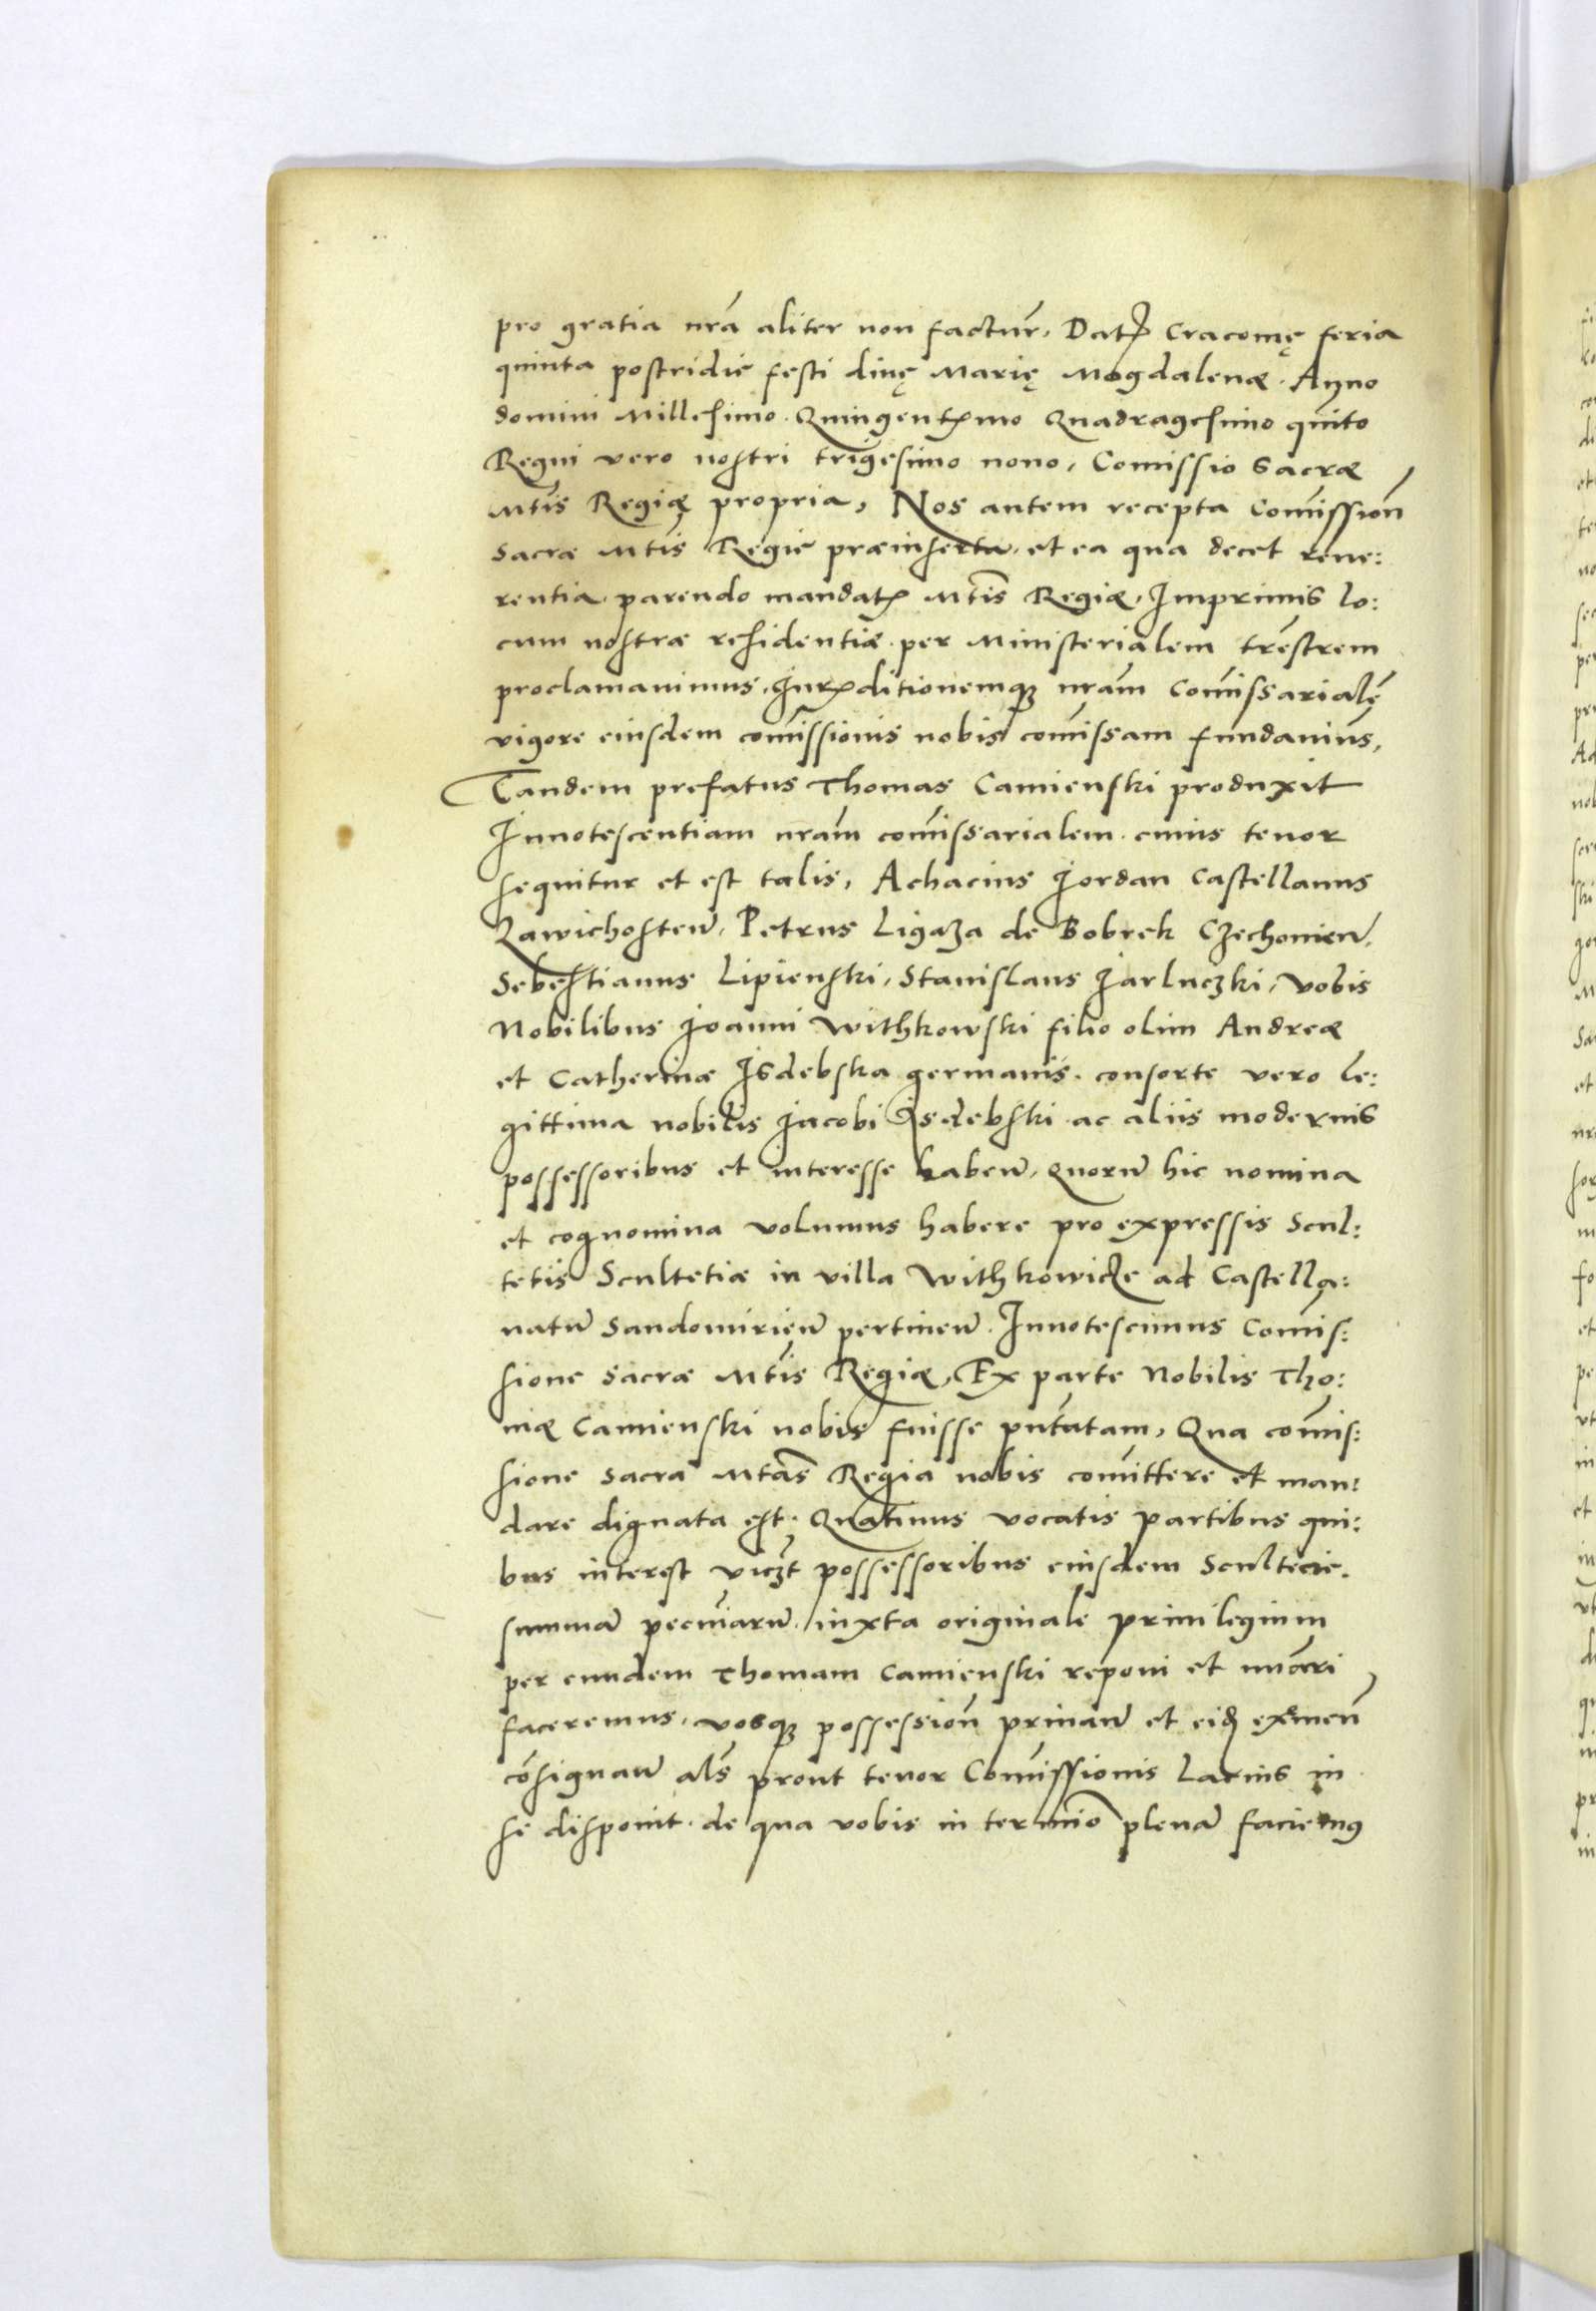 pro gratia nrã aliter non factur̃. Datꝭ Cracoviȩ feria
quinta postridie festi divȩ Mariȩ Magdalenæ. Anno
domini Millesimo. Quingentꝭmo Quadragesimo quito
Regni vero nostri trigesimo nono, Com̃issio Sacræ
Mt̃is Regiæ propria, Nos autem recepta Com̃issioñ
Sacræ Mt̃is Regiȩ præinserta, et ea qua decet reve:
rentia. parendo mandatꝭ Mt̃is Regiæ, Imprimis lo:
cum nostræ residentiæ. per Ministerialem tr̃estrem
proclamavimus, Jurꝭditionemqꝫ nr̃am Com̃issarialẽ
vigore eiusdem com̃issionis nobis com̃issam fundavim̃s,
Tandem prefatus Thomas Camienski produxit
Innotescentiam nr̃am com̃issarialem. cuius tenor
sequitur et est talis, Achacius Jordan Castellanus
Zawichosteñ, Petrus Ligaza de Bobrek Czechovieñ,
Sebestianus Lipienski, Stanislaus Jarluczki, vobis
Nobilibus Joanni Withkowski filio olim Andreæ
et Catherinæ Isdebska germanis. consorte vero le:
gittima nobilis Jacobi Isdebski ac aliis modernis
possessoribus et interesse habeñ, quorũ hic nomina
et cognomina volumus habere pro expressis Scul:
tetis Scultetiæ in villa Withkowicze ad Castella:
natũ Sandomirieñ pertineñ. Innotescimus Com̃is:
sione Sacræ Mt̃is Regiæ, Ex parte Nobilis Tho:
mæ Camienski nobis fuisse pñtatam, Qua com̃is:
sione Sacra Mt̃as Regia nobis com̃ittere et man:
dare dignata est. Quatinus vocatis partibus qui:
bus interest viczt possessoribus eiusdem Scultecie.
summã pecuniarũ. iuxta originale privilegium
per eundem Thomam Camienski reponi et nũari
faceremus, vosqꝫ possessioñ privañ et eidꝫ exñnc
cõsignañ als̃ prout tenor Com̃issionis Latius in
se disponit. de qua vobis in termino plenã faciemꝰ